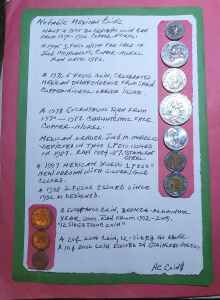 NOTABLE MEXICAN COINS
WHAT A 1975 50 CENTAVO COIN RAN
FROM 1975-1982 COPPER-NICKEL.
A 1978 1 PESO WITH THE FACE OF
JOSÉ MORELOS, COPPER-NICKEL
RAN UNTIL 1983.
A 1976 5 PESOS COIN, CELEBRATES
MEXICAN INDEPENDENCE FROM SPAIN
COPPER-NICKEL LARGER ISSUE.
A 1978 CENTAVOS RAN FROM
CUAUHTEMOC FACE
COPPER-NICKEL.
MEXICAN LEADER JOSÉ M. MORELOS
DEPICTED IN THIS 1 PESO ISSUED
IN 1987. RAN 1984-87. STAINLESS
STEEL.
A 1993 MEXICAN NUEVO 1 PESO
NEW VERSION WITH SILVER/GOLD
COLORS.
A 1998 2 PESOS ISSUED SINCE
1996 AS DESIGNED.
A 50 CENTAVOS COIN, BRONZE-ALUMINUM
YEAR 2000 RAN FROM 1992-2009,
"12 SIDES TOUS COIN"
A 20¢ 2004 COIN, 12-SIDED AS ABOVE
A 10¢ 2000 COIN ISSUED IN STAINLESS STEEL.
AC COINS